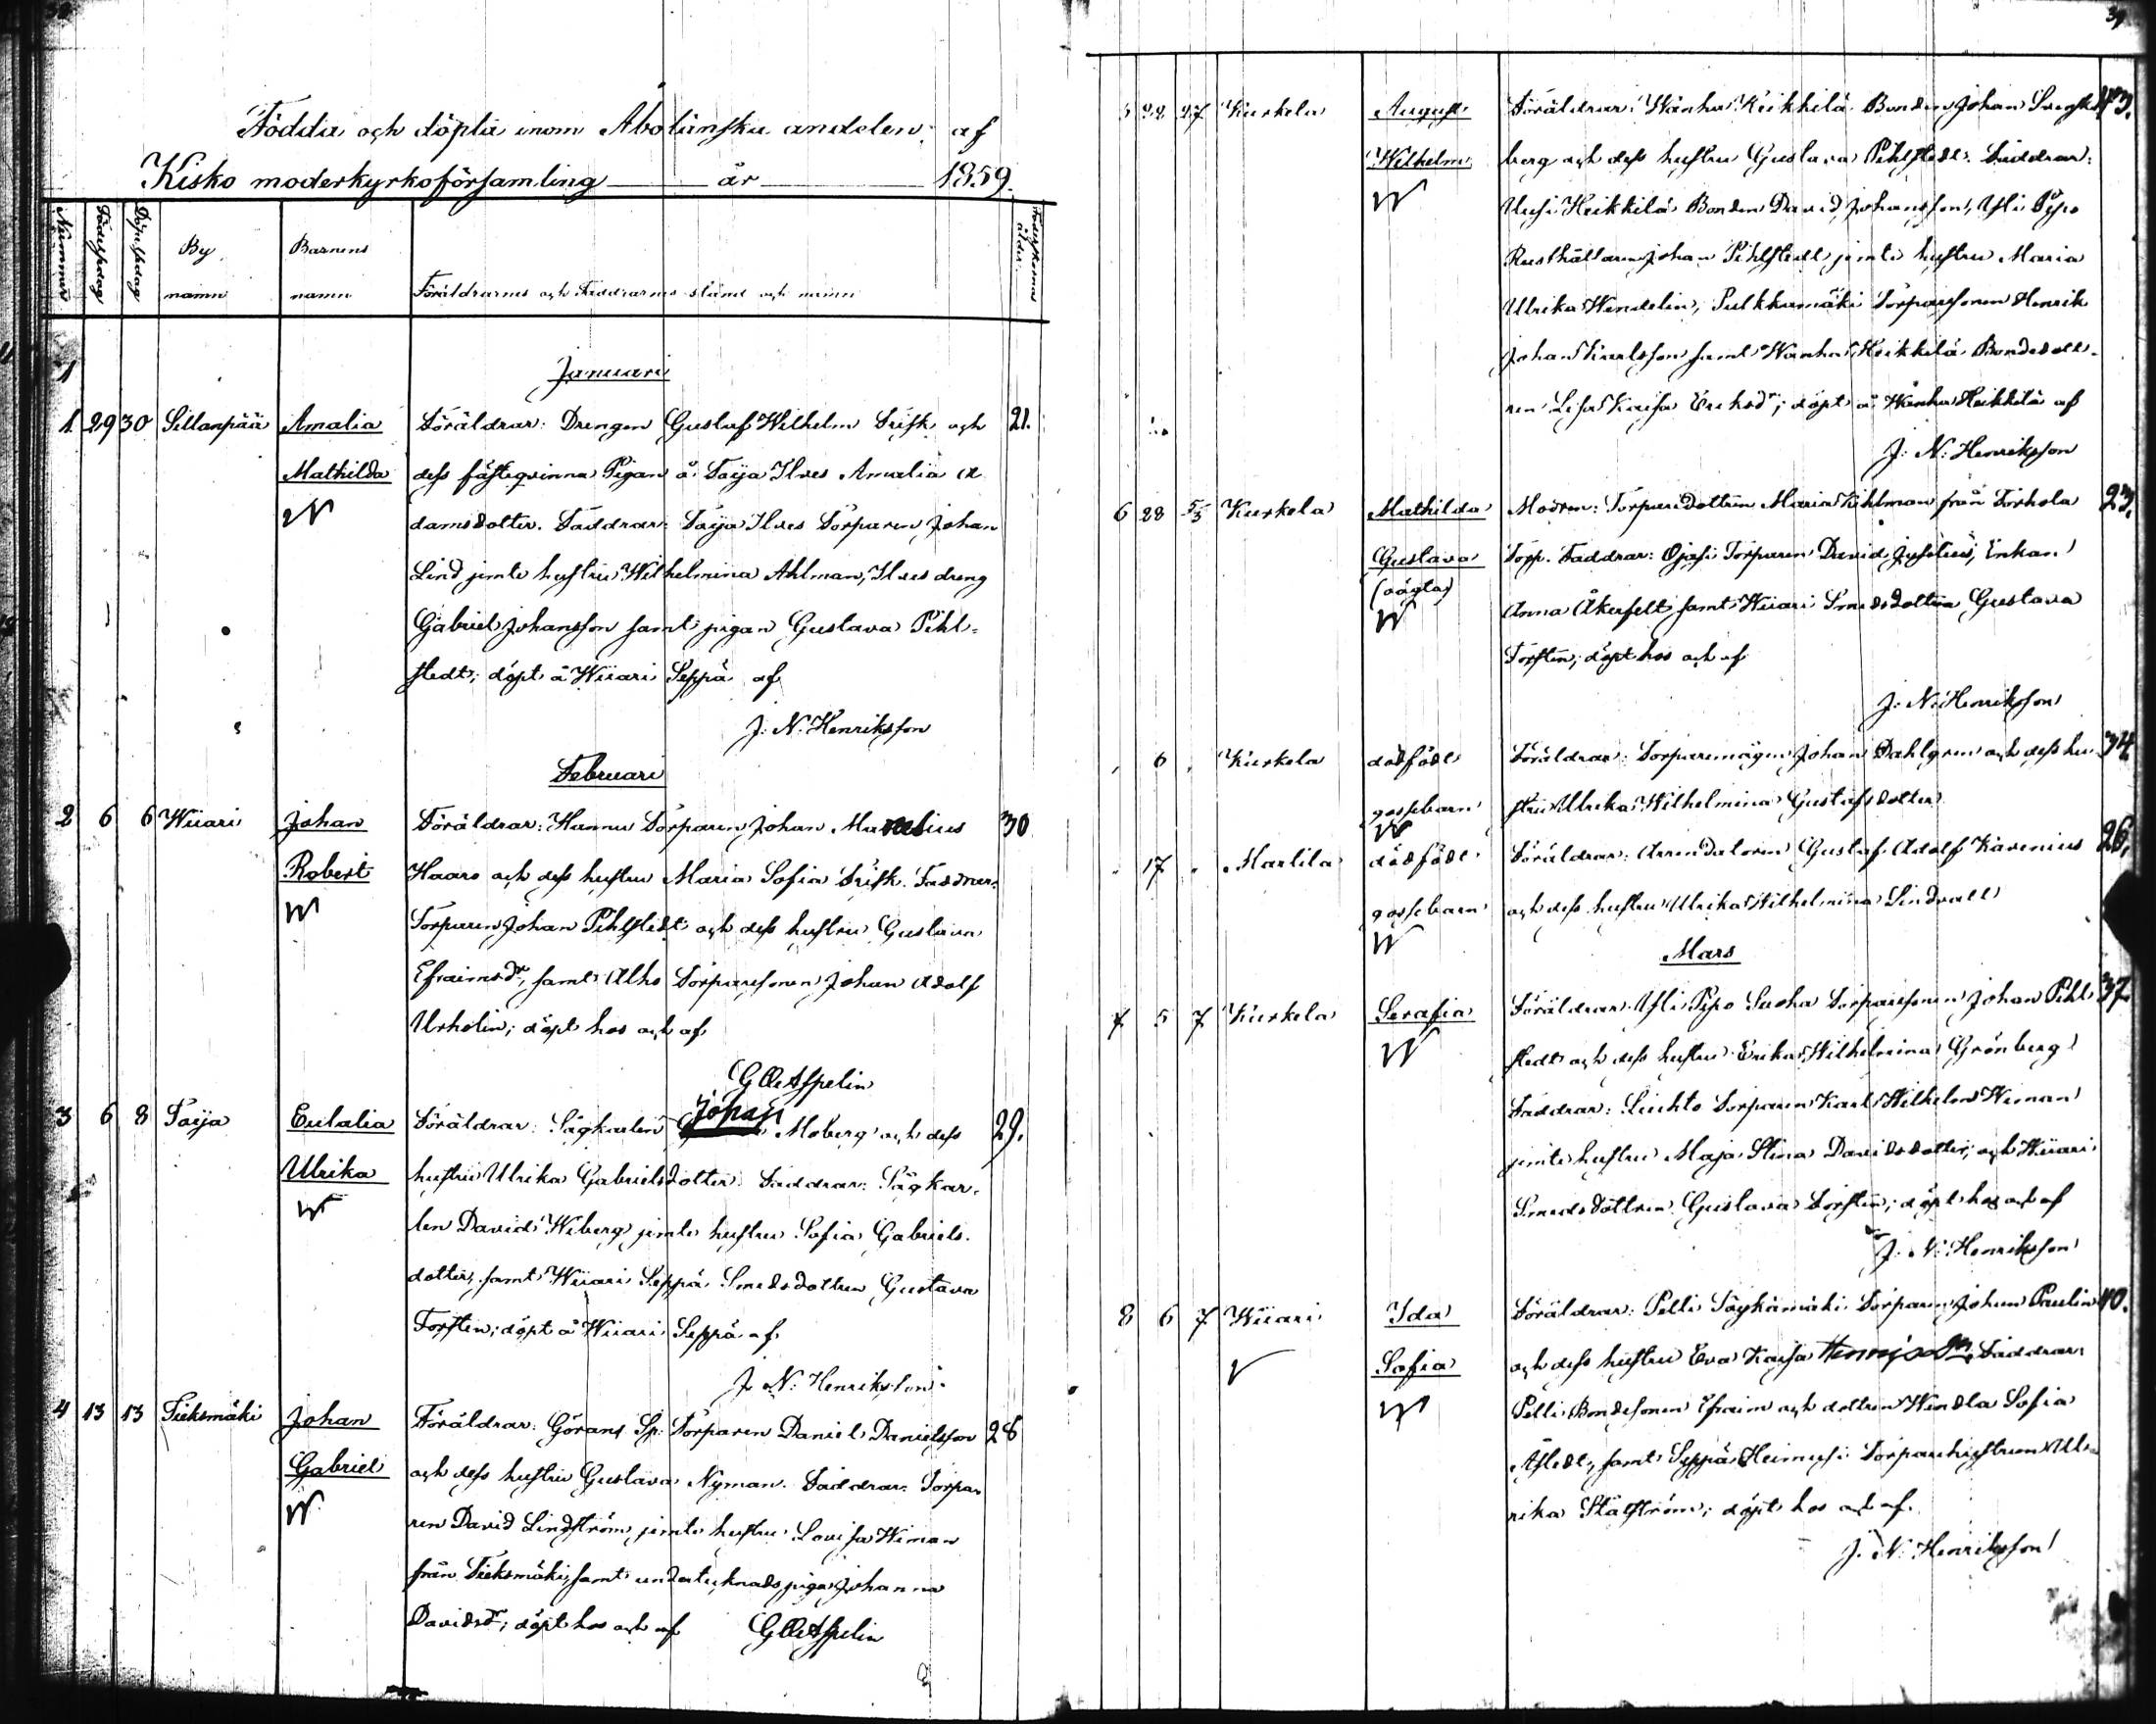 Födda och döpta inom Åbolänska andelen af
Kisko moderkyrkoförsamling år 1859.
Nummer Födelsedag Döpelsedag By namn Barnens namn Föräldrarnes och Faddrarnes stånd och namn ålder
Januari
1. 29 30 Sillanpää Amalia Föräldrar: Drengen Gustaf Wilhelm Frisk och 21.
Mathilda dess fästeqvinna Pigan å Taija Ilves Amalia A
damsdotter. Faddrar: Taija Ilves Torparen Johan
Lind jemte hustru Wilhelmina Ahlman, Ilves dreng
Gabriel Johansson samt pigan Gustava Pihl-
stedt; döpt å Wiiari Seppä af
J. N. Henriksson
Februari
2 6 6 Wiiari Johan Föräldrar: Hannu Torparen Johan 30
Robert Haaro och dess hustru Maria Sofia Frisk. Faddrar:
Torparen Johan Pihlstedt och dess hustru Gustava
Efraimsdr, samt Alho Torparesonen Johan Adolf
Urholin; döpt hos och af
G Aspelin
3 6 8 Taija Eulalia Föräldrar: Sågkarlen Johan Moberg och dess 29.
Ulrika hustru Ulrika Gabrielsdotter. Faddrar: Sågkar-
len David Wiberg jemte hustru Sofia Gabriels-
dotter, samt Wiiari Seppä Smedsdottren Gustava
Forstén; döpt å Wiiari Seppä af
J. N. Henriksson
4 13 13 Tieksmäki Johan Föräldrar: Görans Sp. Torparen Daniel Danielsson 28
Gabriel och dess hustru Gustava Nyman. Faddrar: Torpa-
ren David Lindström jemte hustru Lovisa Wiman
från Tieksmäki, samt undertecknads piga Johanna
Davidsdr; döpt hos och af G Aspelin
5 22 27 Kurkela August Föräldrar: Wanha Heikkilä Bonden Johan 43.
Wilhelm berg och dess hustru Gustava Pihlstedt. Faddrar:
Uusi Heikkilä Bonden David Johansson, Yli Pipo
Rusthållaren Johan Pihlstedt jemte hustru Maria
Ulrika Wendelin, Pulkkamäki Torparesonen Henrik
Johan Karlsson samt Wanha Heikkilä Bondedott-
ren Lisa Kaisa Eriksdr; döpt å Wanha Heikkilä af
J. N. Henriksson
6 28 5/3 Kurkela Mathilda Modren: Torparedottren Maria Kihlman från Torhola 23.
Gustava Torp. Faddrar: Ojasi Torparen David Juselius, Enkan
(oägta) Anna Åkerfelt samt Wiiari Smedsdottren Gustava
Forstén; döpt hos och af
J. N. Henriksson
6 Kurkela dödfödt Föräldrar: Torparemågen Johan Dahlgren och dess hu- 34
gossebarn stru Ulrika Wilhelmina Gustafsdotter
17 Marttila dödfödt Föräldrar: Arrendatoren Gustaf Adolf Kavenius 26.
gossebarn och dess hustru Ulrika Wilhelmina Lindvall
Mars
7 5 7 Kurkela Serafia Föräldrar: Yli Pipo Suoha Torparesonen Johan Pihl- 37.
stedt och dess hustru Erika Wilhelmina Grönberg
Faddrar: Torparen Karl Wilhelm Wiman
jemte hustru Maja Stina Davidsdotter, och Wiiari
Smedsdottren Gustava Forstén; döpt hos och af
J. N. Henriksson
8 6 7 Wiiari Ida Föräldrar: Pelli Torparen Johan Paulin 40.
Sofia och dess hustru Eva Kaisa Henriksdr. Faddrar:
Pelli Bondesonen Efraim och dottren Wendla Sofia
samt Seppä Heimusi Torparehustrun Ul-
rika Stålström; döpt hos och af
J. N. Henriksson